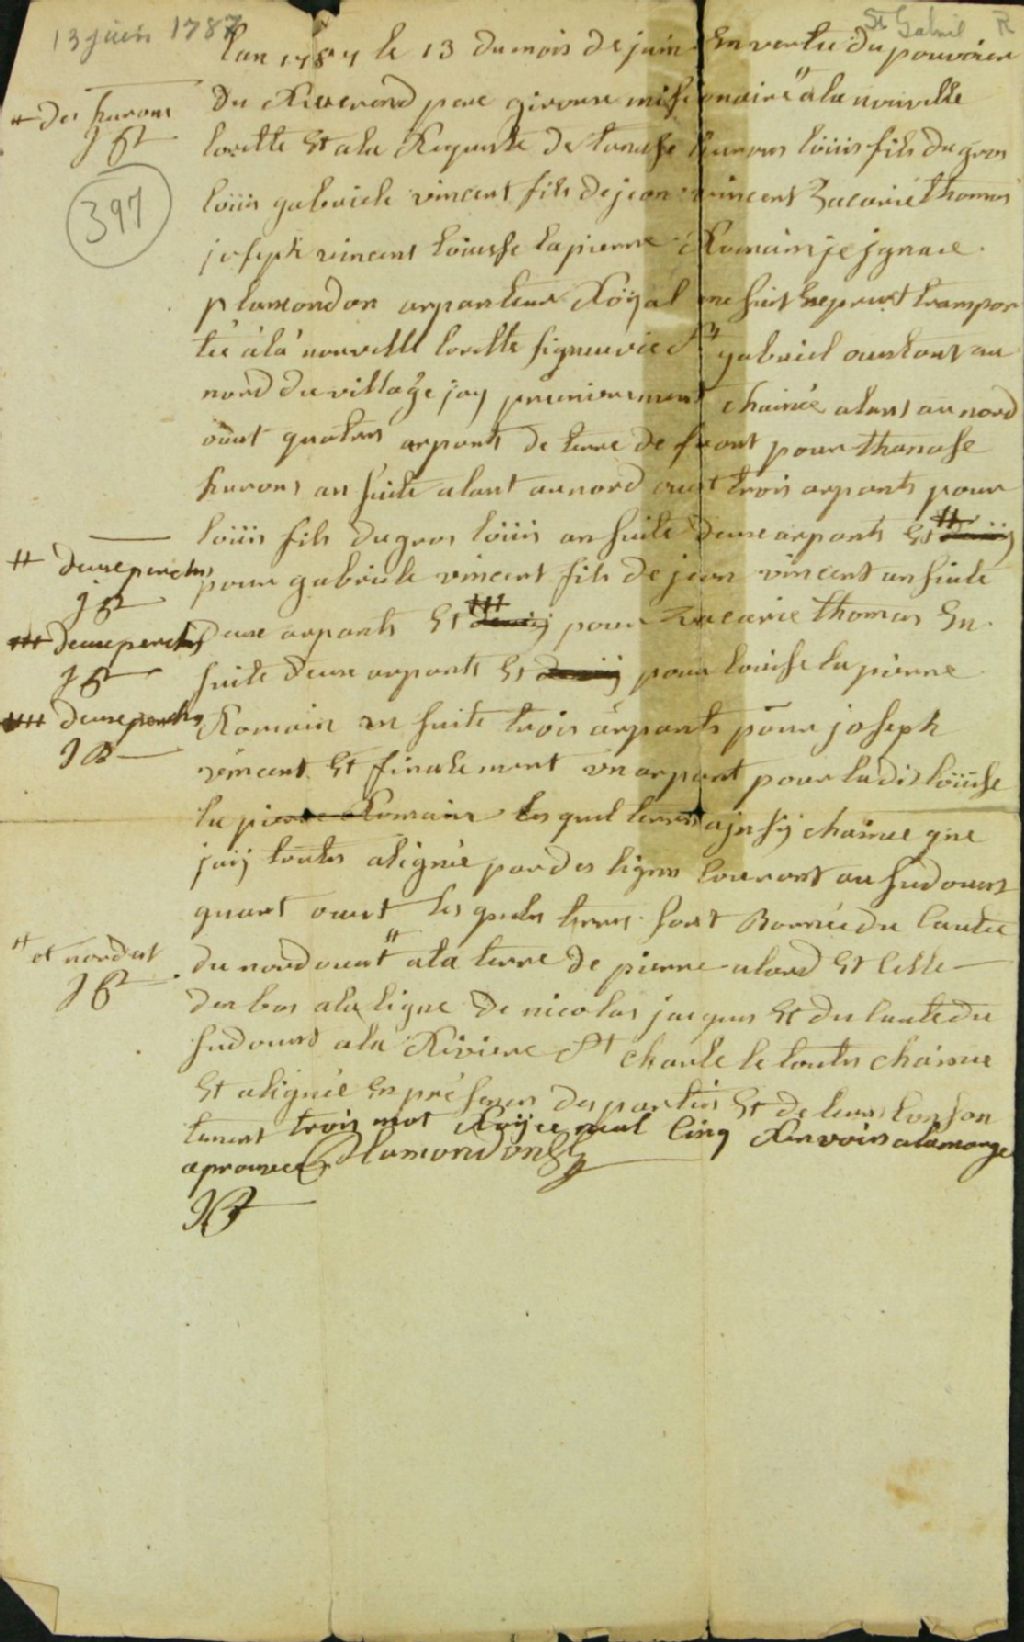 13 juin 1787
St Gabriel R
lan 1787 le 13 dumois de juin En vertu du pouvoier
du Rieverend pere girouse missionaire # ala nouvelle
# des hurons
JBP
lorette Et ala Requeste de tanasse hurons loüis fils du gros
397
loüis gabriele vincent fils de jean vincent Zacarie thomas
joseph vincent loüisse lapierre Romain je jgnace
plamondon arpanteur Röyal me suis Expres transpor
té à la nouvelle lorette signeurie St gabriel ou etant au
nord du village jay premierement chainée alant au nord
ouest quatres arpants de terre de front pour thanase
hurons an suite alant au nord ouest trois arpants pour
loüis fils du gros loüis an suite deux arpants Et # demij
# deuse perches
JBP
pour gabriele vincent fils de jean vincent an suite
deux arpants Et ## demij pour Zacarie thomas En
## deuse perches
JBP
suite deux arpants Et demij pour loüisse lapierre
### deuse perches
JBP
Romain en suite trois arpants pour joseph
vincent Et finalement un arpant pour ladit loüisse
la pierre Romain les quel terres ajnsÿ chainee que
jaij toutes alignée par des lignes Courant au sudouest
quart ouest les quels terres sont Bornée du Cautée
# et nordest
JBP
du nordouest # ala terre de pierre alard Et Celle
den bas ala ligne de nicolas jacques Et du Cautedu
sudouest ala Riviere St charle le toutes chainee
Et alignée En presence des parties Et de leurs Conson
tement trois mot Raÿee nul Cinq Renvois alamarge
aprouvee Plamondon
JBP